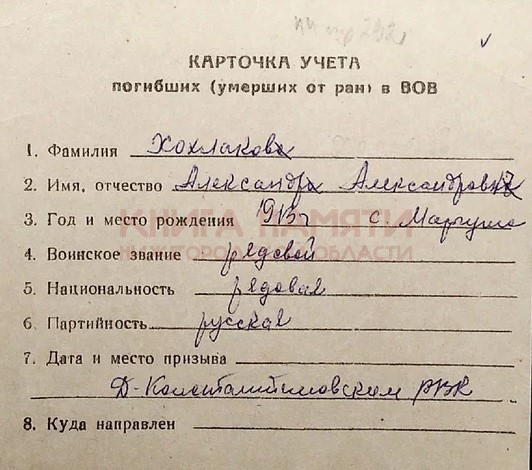 КАРТОЧКА УЧЕТА
погибших (умерших от ран) в ВОВ
1. Фамилия Хохлакова
2. Имя, отчество Александра Александровна
3. Год и место рождения 1913г с. Маргуша
КНИГА ПАМЯТИ
НИЖЕГОРОДСКОЙ ОБЛАСТИ
4. Воинское звание рядовой
5. Национальность рядовая
6. Партийность русская
7. Дата и место призыва
Д-Константиновским РВК
8. Куда направлен